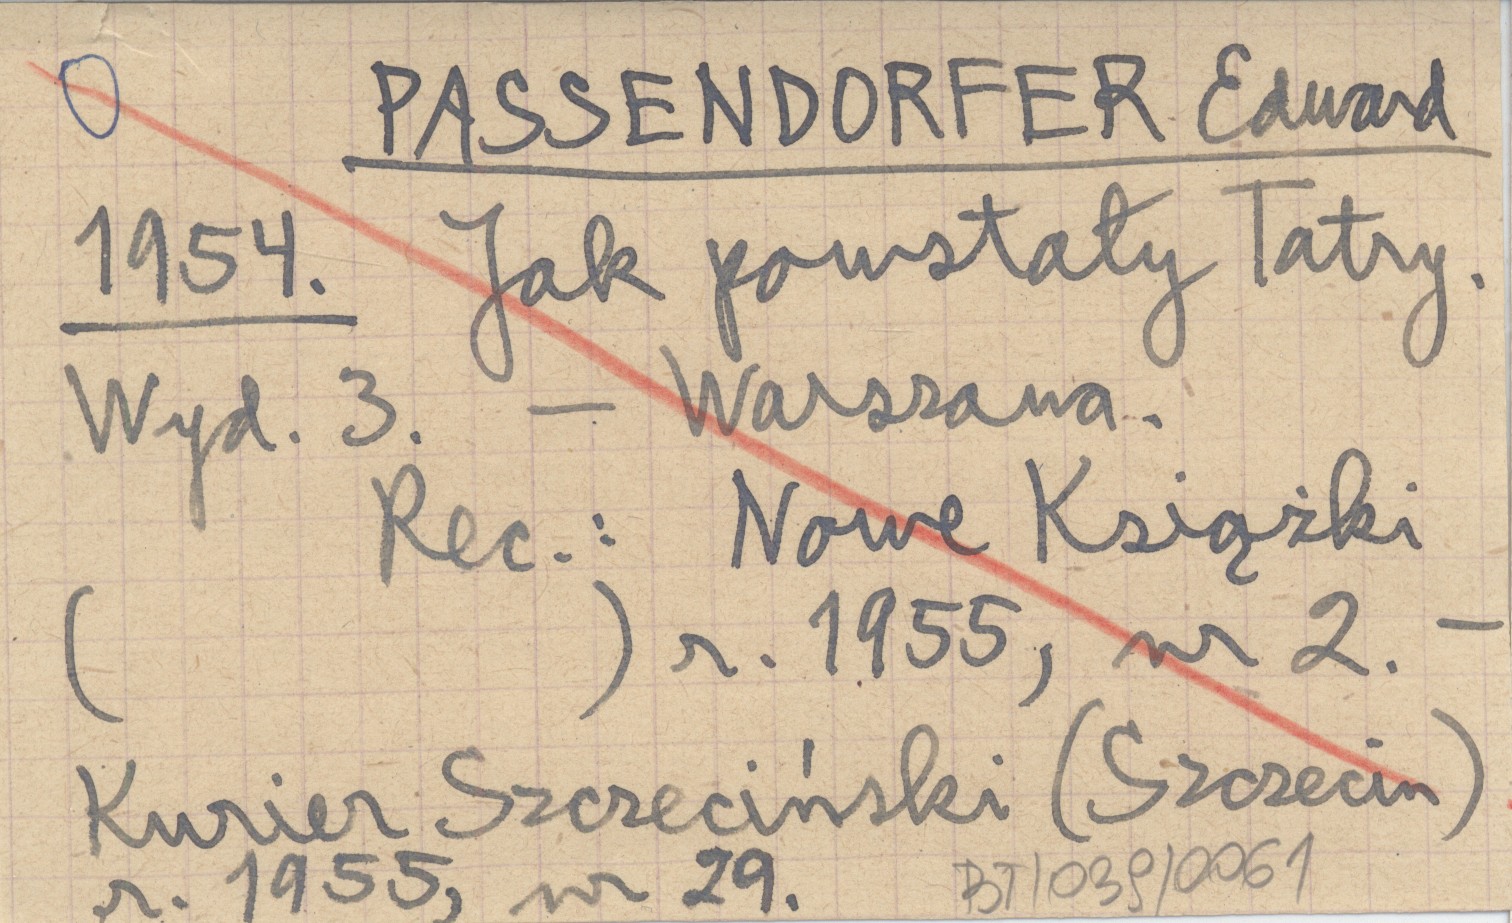 PASSENDORFER Edward
1954. Jak powstały Tatry.
Wyd. 3. — Warszawa.
Rec.: Nowe Książki
( ) r. 1955, nr 2. —
Kurier Szczeciński (Szczecin)
r. 1955, nr 29.
BT/039/0061